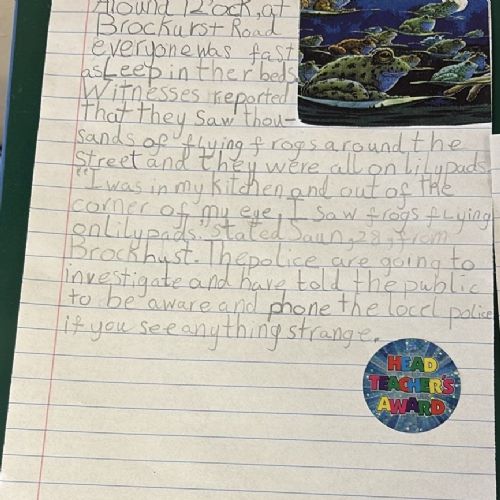 Around 12'ock, at
Brockurst Road
everyone was fast
asLeep in ther beds
Witnesses reported
that they saw thou-
sands of flying frogs around the
street and they were all on lilypads.
"I was in my kitchen and out of the
corner of my eye, I saw frogs fLying
on lilypads." stated Saun, 28, from
Brockhust. The police are going to
investigate and have told the public
to be aware and phone the locel police
if you see anything strange.
HEAD
TEACHER'S
AWARD